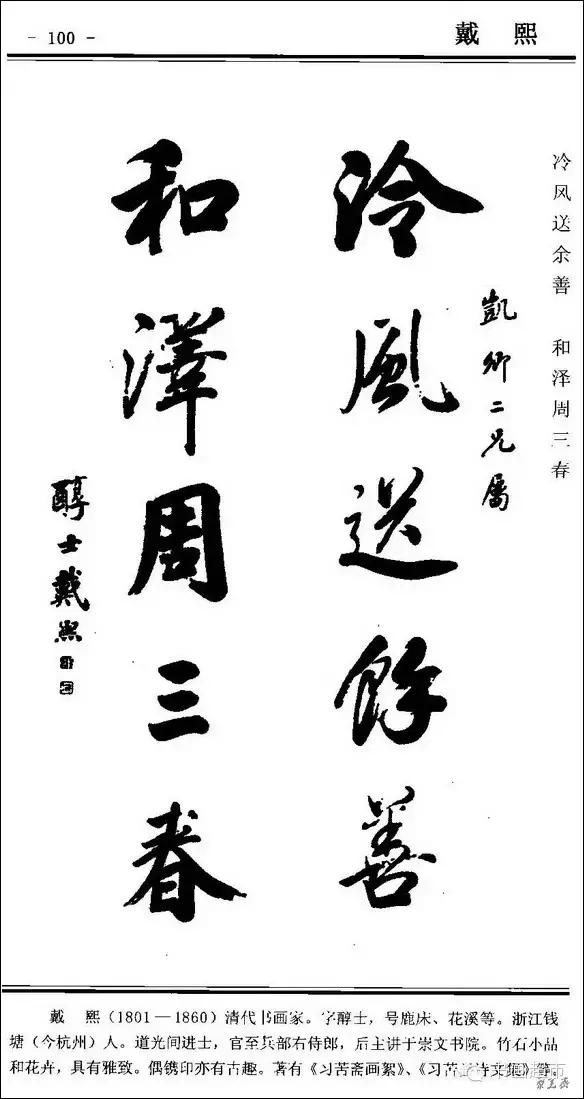 - 100 -
戴 熙
冷风送余善 和泽周三春
凯卿二兄属
泠風送餘善
和澤周三春
醇士戴熙
戴 熙（1801—1860）清代书画家。字醇士，号鹿床、花溪等。浙江钱
塘（今杭州）人。道光间进士，官至兵部右侍郎，后主讲于崇文书院。竹石小品
和花卉，具有雅致。偶镌印亦有古趣。著有《习苦斋画絮》、《习苦